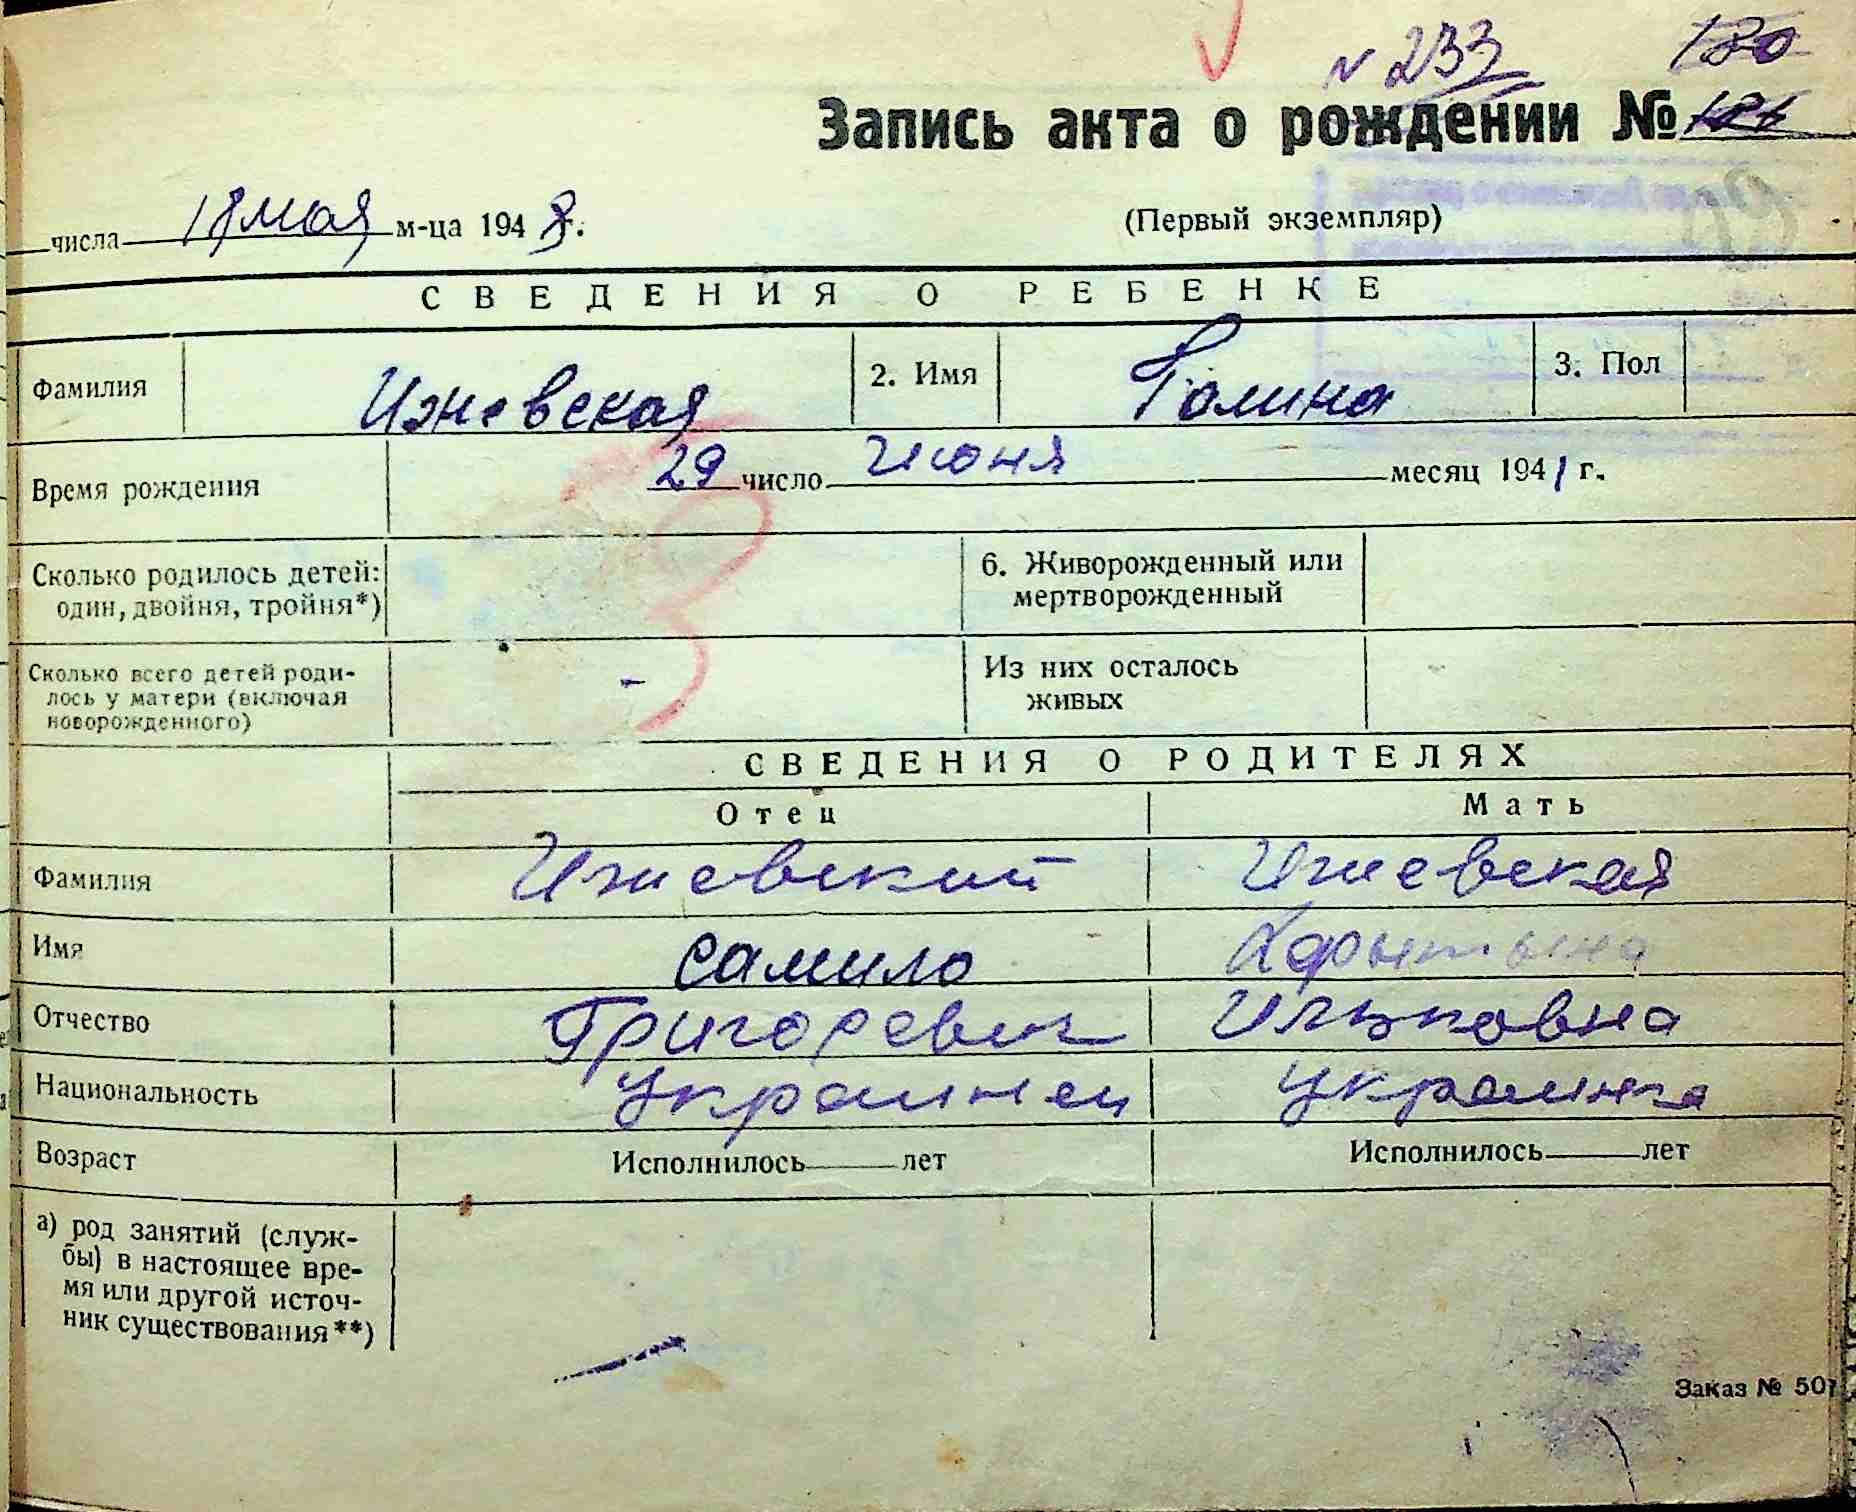 № 233 130
Запись акта о рождении №
числа 18 мая м-ца 1948 г.
(Первый экземпляр)
СВЕДЕНИЯ О РЕБЕНКЕ
Фамилия Ижевская 2. Имя Галина 3. Пол
Время рождения 29 число июня месяц 1941 г.
Сколько родилось детей: 6. Живорожденный или
один, двойня, тройня*) мертворожденный
Сколько всего детей роди- Из них осталось
лось у матери (включая живых
новорожденного) -
СВЕДЕНИЯ О РОДИТЕЛЯХ
Отец Мать
Фамилия Ижевский Ижевская
Имя Самило
Отчество Григоревич Ильковна
Национальность Украинец Украинка
Возраст Исполнилось лет Исполнилось лет
а) род занятий (служ-
бы) в настоящее вре-
мя или другой источ-
ник существования**)
Заказ № 507